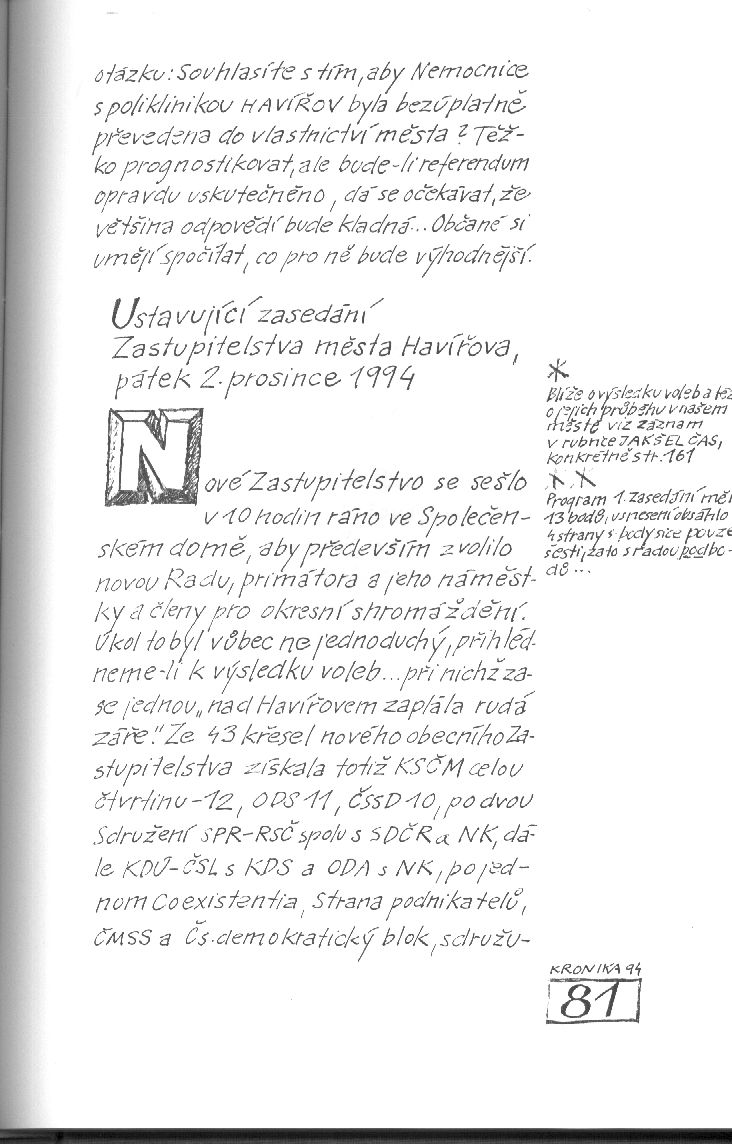 otázku: Souhlasíte s tím, aby Nemocnice
s poliklinikou HAVÍŘOV byla bezúplatně
převedena do vlastnictví města? Těž-
ko prognostikovat, ale bude-li referendum
opravdu uskutečněno, dá se očekávat, že
většina odpovědí bude kladná... Občané si
umějí spočítat, co pro ně bude výhodnější.
Ustavující zasedání
Zastupitelstva města Havířova,
pátek 2. prosince 1994
Nové Zastupitelstvo se sešlo
v 10 hodin ráno ve Společen-
ském domě, aby především zvolilo
novou Radu, primátora a jeho náměst-
ky a členy pro okresní shromáždění.
Úkol to byl vůbec ne jednoduchý, přihléd-
neme-li k výsledku voleb... při nichž za-
se jednou „nad Havířovem zaplála rudá
záře." Ze 43 křesel nového obecního Za-
stupitelstva získala totiž KSČM celou
čtvrtinu - 12, ODS 11, ČSSD 10, po dvou
Sdružení SPR-RSČ spolu s SDČR a NK, dá-
le KDU-ČSL s KDS a ODA s NK, po jed-
nom Coexistentia, Strana podnikatelů,
ČMSS a Čs. demokratický blok, sdružu-
*
Blíže o výsledku voleb a též
o jejich průběhu v našem
městě viz záznam
v rubrice JAK ŠEL ČAS,
konkrétně str. 161
* *
Program 1. zasedání měl
13 bodů, usnesení obsáhlo
4 strany s body sice pouze
šesti, zato s řadou podbo-
dů...
KRONIKA 94
81